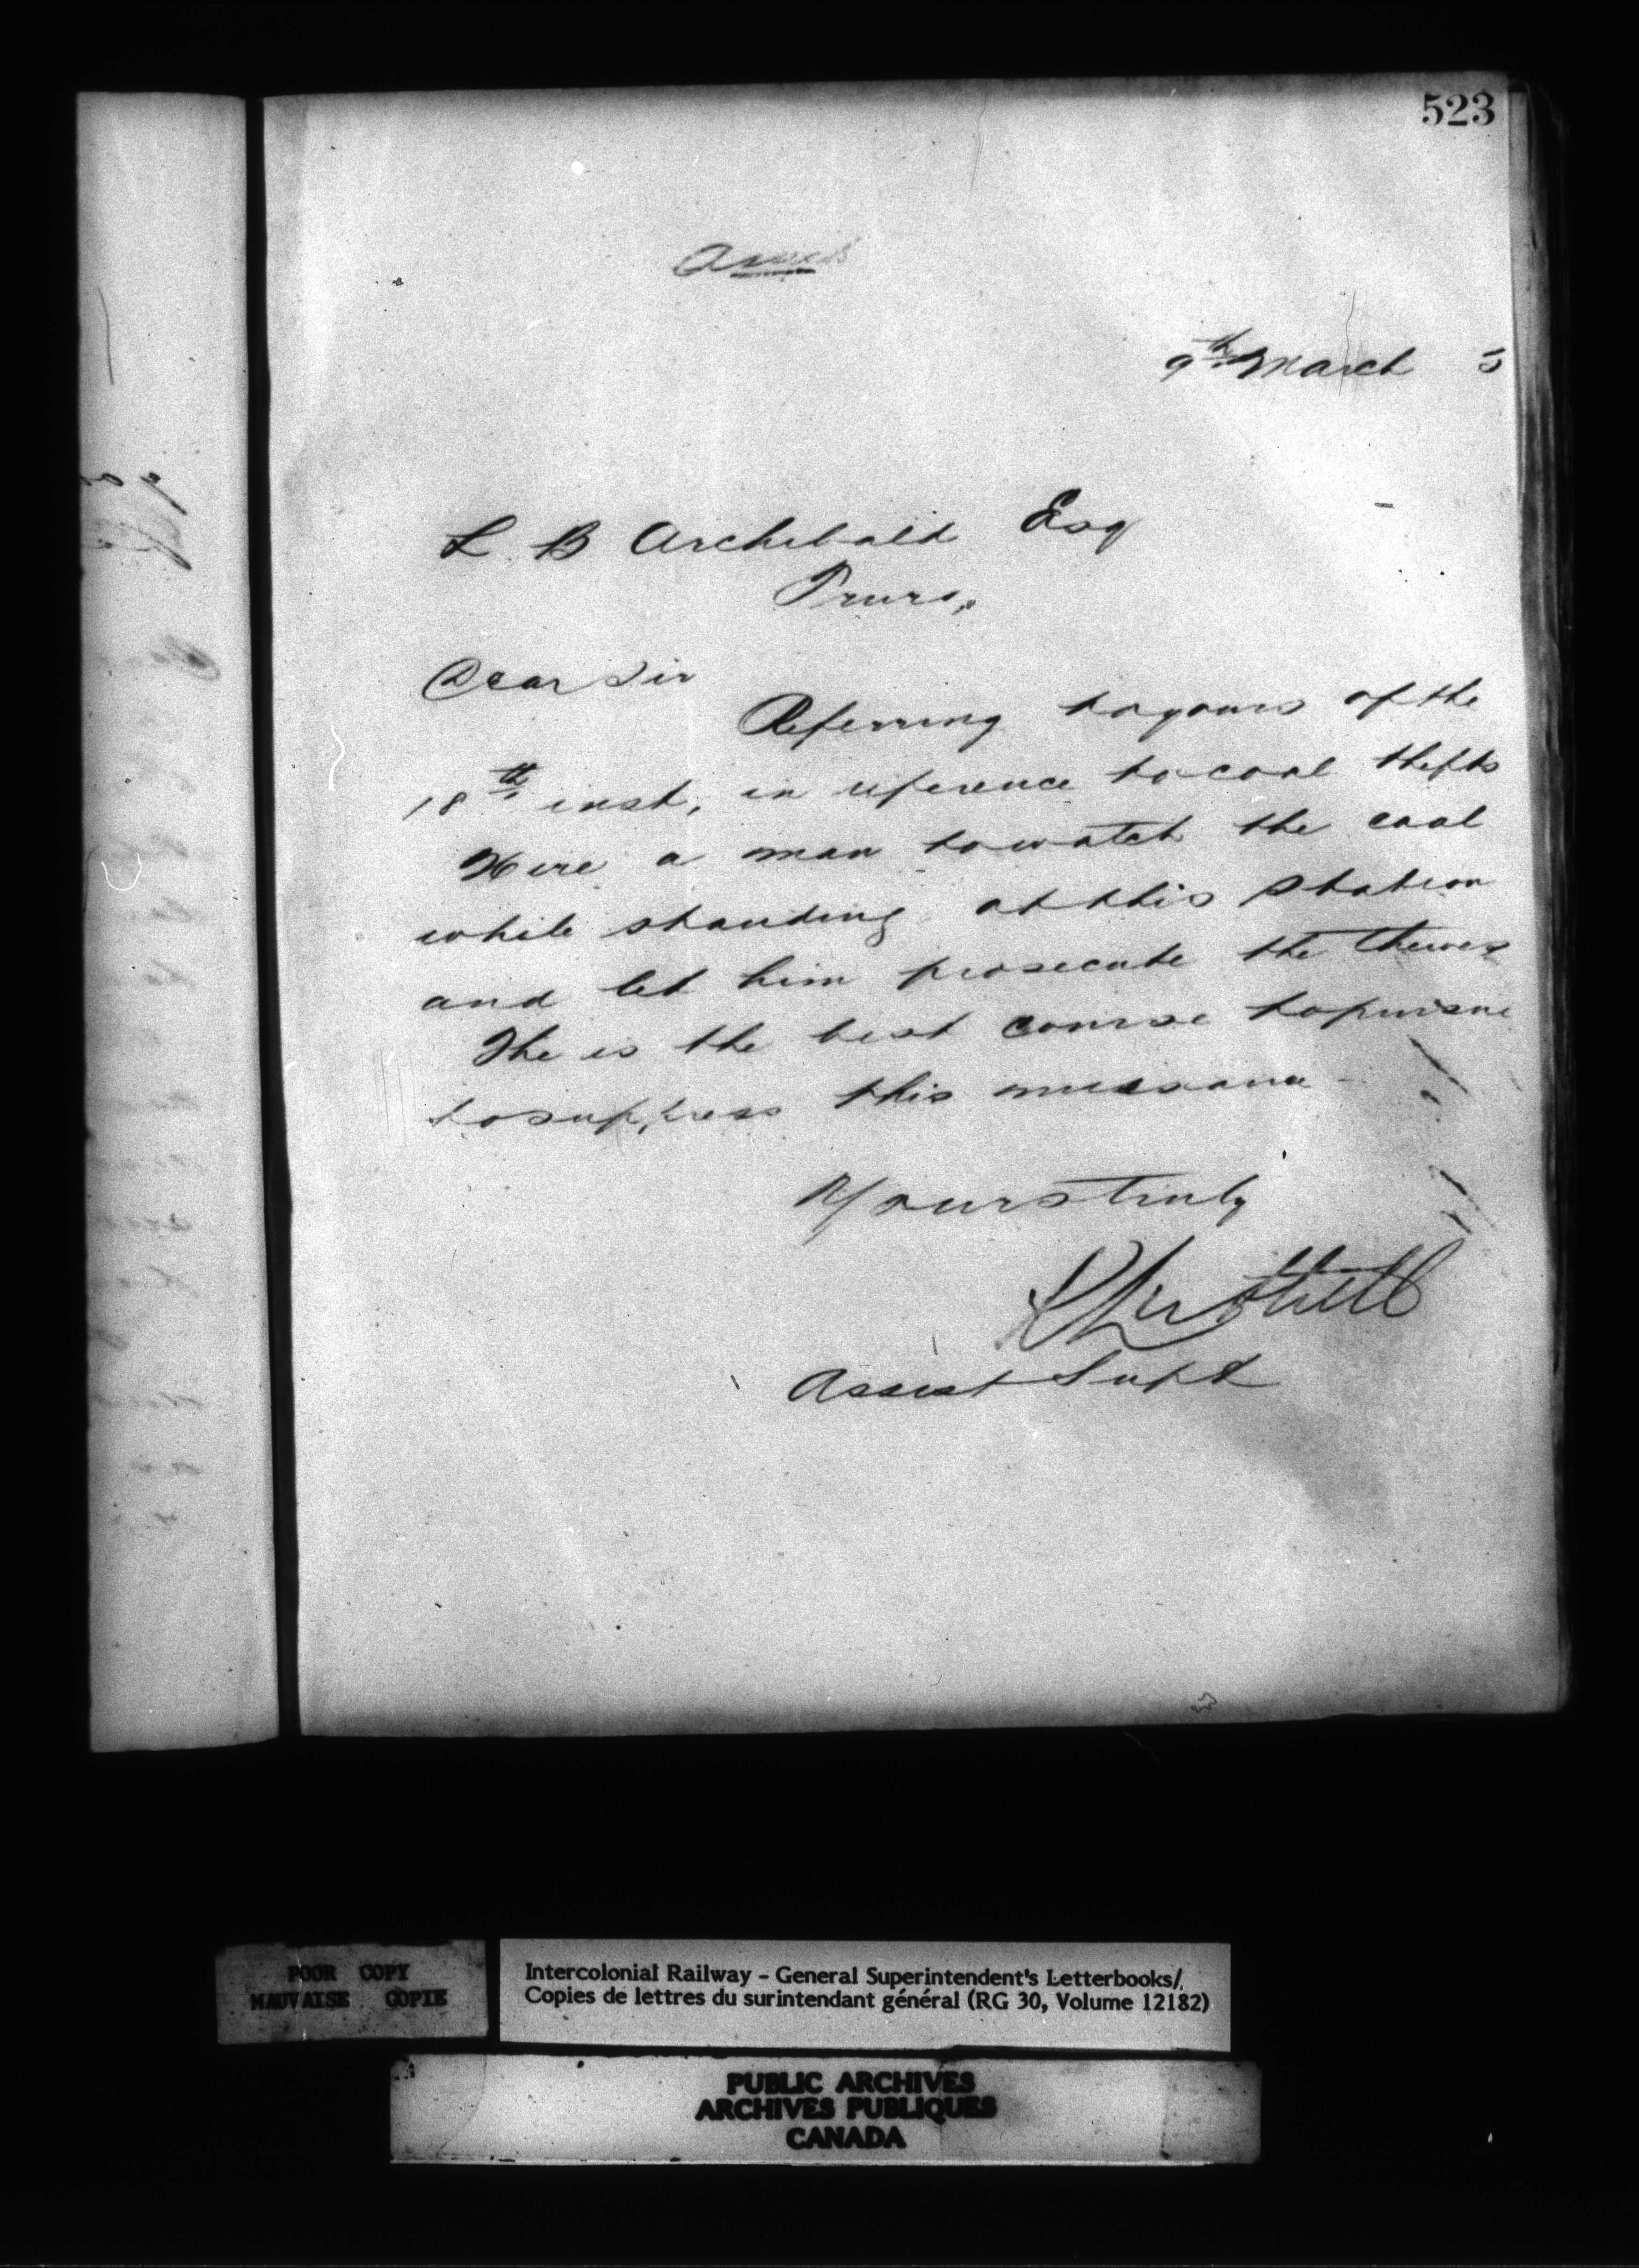 523
9th March 5
L. B. Archibald Esq
Truro,
Dear Sir
Referring to yours of the
18th inst, in reference to coal thefts
Hire a man to watch the coal
while standing at this Station
and let him prosecute the thieves
The is the best course to pursue
to suppress this nuisance
Yours truly
Assist Supt
POOR COPY
MAUVAISE COPIE
Intercolonial Railway - General Superintendent's Letterbooks/
Copies de lettres du surintendant général (RG 30, Volume 12182)
PUBLIC ARCHIVES
ARCHIVES PUBLIQUES
CANADA